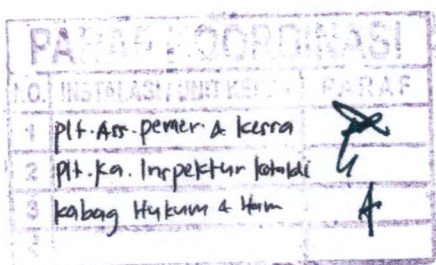 PARAF KOORDINASI
NO. INSTALASI/UNIT KERJA PARAF
1 plt. Ass. pemer. & kesra
2 plt. ka. Inspektur
3 kabag Hukum & Ham